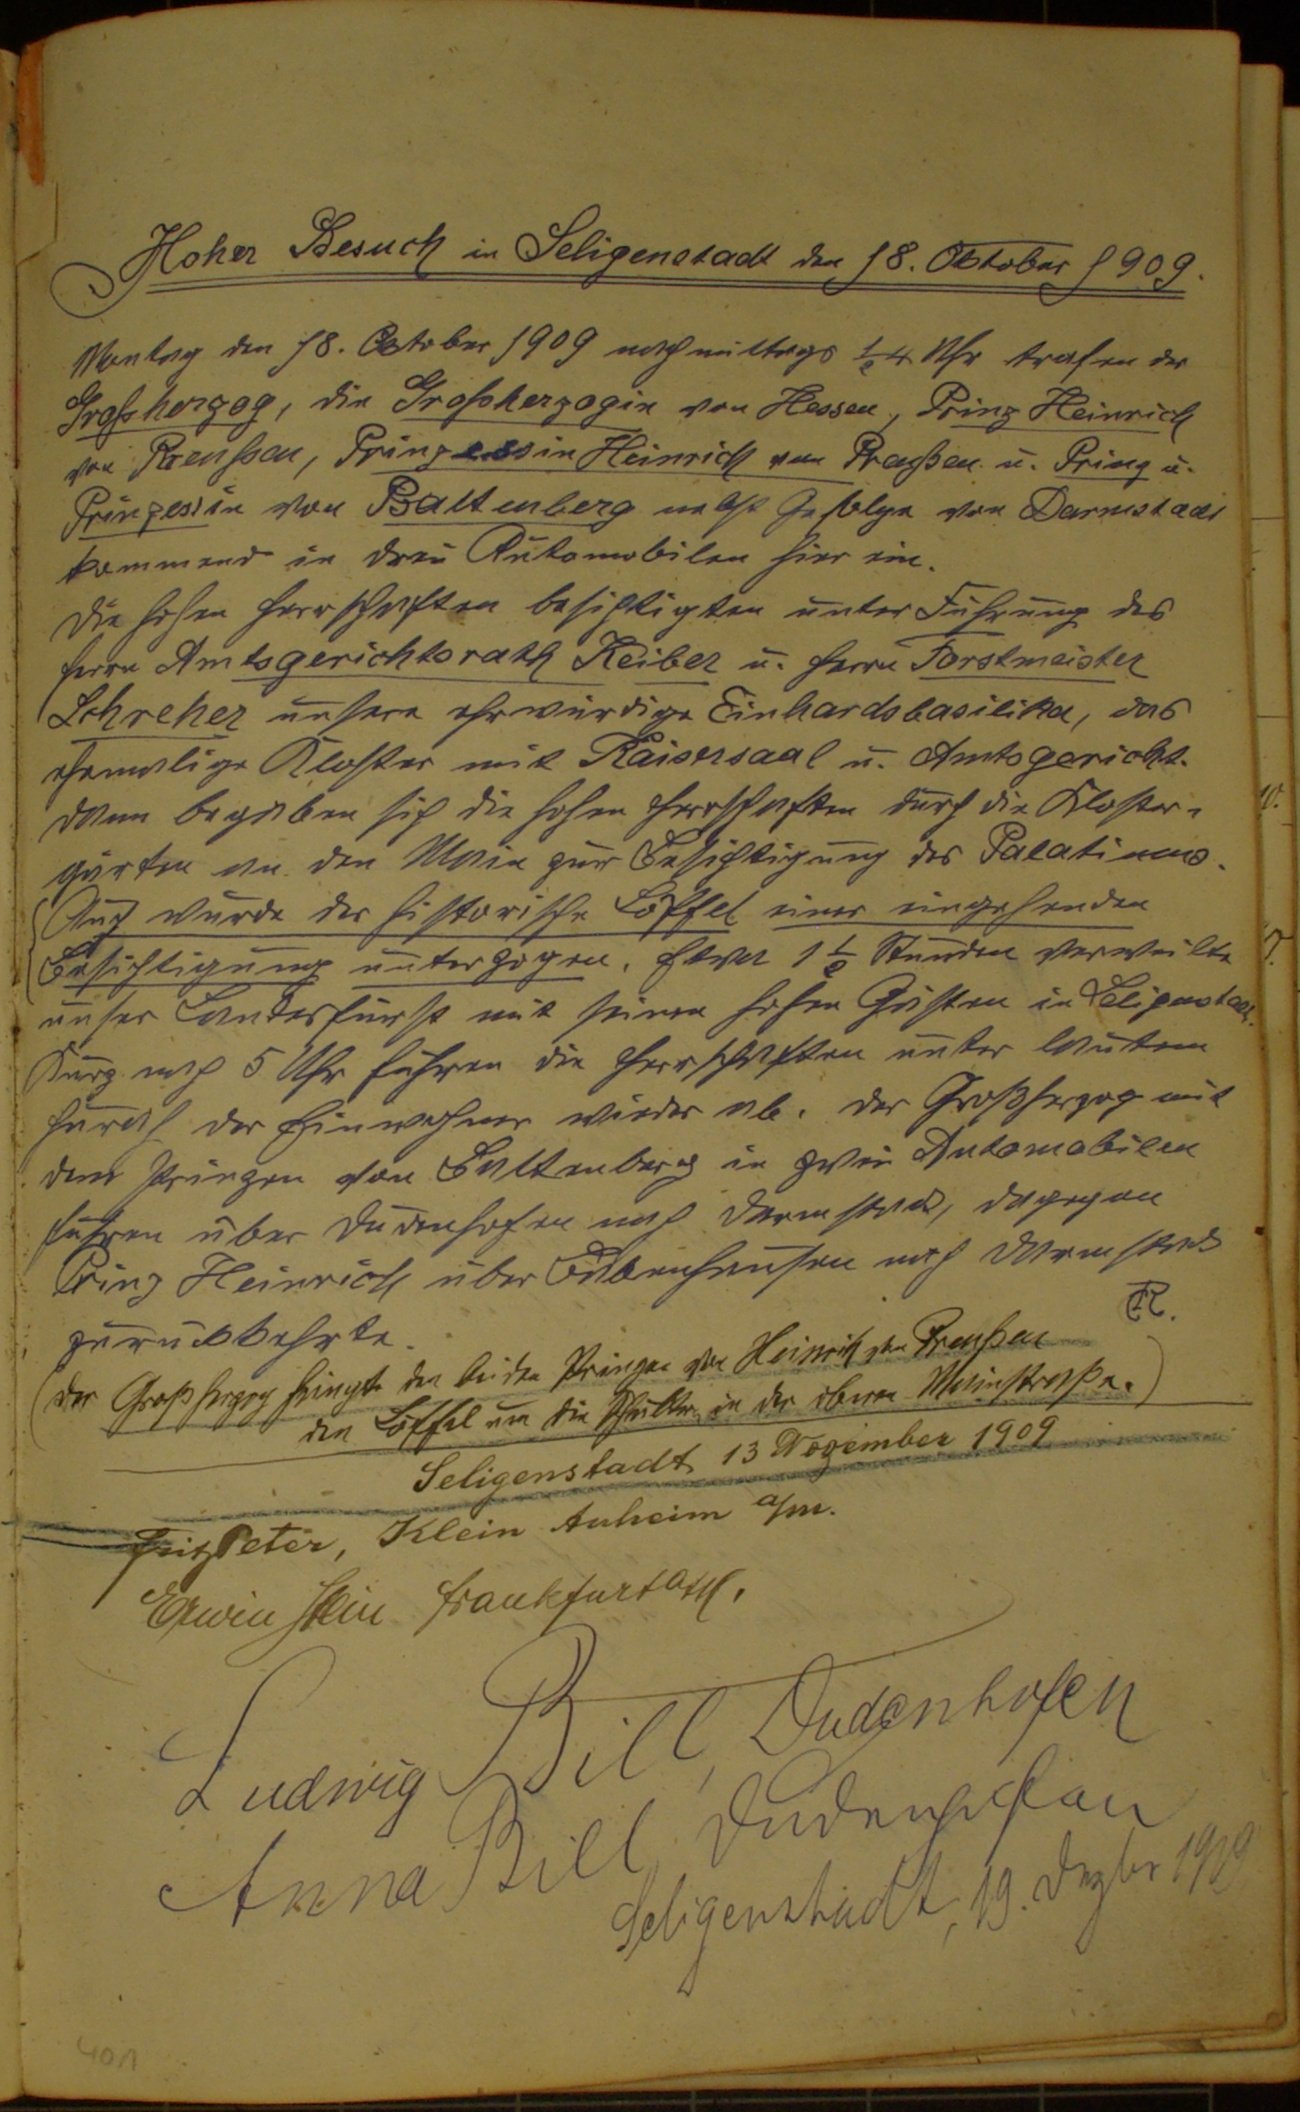 Hoher Besuch in Seligenstadt den 18. Oktober 1909.
Montag den 18. October 1909 nachmittags ½4 Uhr trafen der
Großherzog, die Großherzogin von Hessen, Prinz Heinrich
von Preußen, Prinzessin Heinrich von Preußen u. Prinz u.
Prinzessin von Battenberg nebst Gefolge von Darmstadt
kommend in drei Automobilen hier ein.
Die hohen Herrschaften besichtigten unter Führung des
Herrn Amtsgerichtsrath Keiber u. Herrn Forstmeister
Schreher unsere ehrwürdige Einhardsbasilika, das
ehemalige Kloster mit Kaisersaal u. Amtsgericht.
Dann begaben sich die hohen Herrschaften durch die Kloster-
gärten an den Main zur Besichtigung des Palatiums.
Auch wurde der historische Löffel einer eingehenden
Besichtigung unterzogen. Etwa 1½ Stunden verweilte
unser Landesfürst mit seinen hohen Gästen in Seligenstadt.
Kurz nach 5 Uhr fuhren die Herrschaften unter lautem
Hurrah der Einwohner wieder ab. Der Großherzog mit
dem Prinzen von Battenberg in zwei Automobilen
fuhren über Dudenhofen nach Darmstadt, dagegen
Prinz Heinrich über Babenhausen nach Darmstadt
zurückkehrte. R.
(Der Großherzog hängte den beiden Prinzen von Heinrich von Preußen
den Löffel um die Schulter, in der oberen Mainstraße.)
Seligenstadt 13 Dezember 1909
Fritz Peter, Klein Auheim a/m.
Erwin Stein Frankfurt a/M.
Ludwig Bill, Dudenhofen
Anna Bill Dudenhofen
Seligenstadt, 19. Dezbr 1909
401